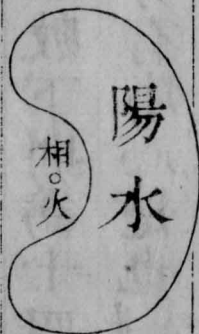 陽水
相○火